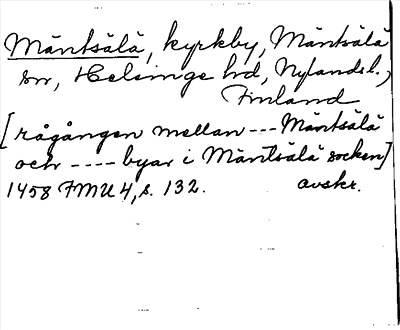 Mäntsälä, kyrkby, Mäntsälä
sn, Helsinge hd, Nylands l.,
Finland
[rågången mellan --- Mäntsälä
och ---- byar i Mäntsälä socken]
1458 FMU 4, s. 132. avskr.